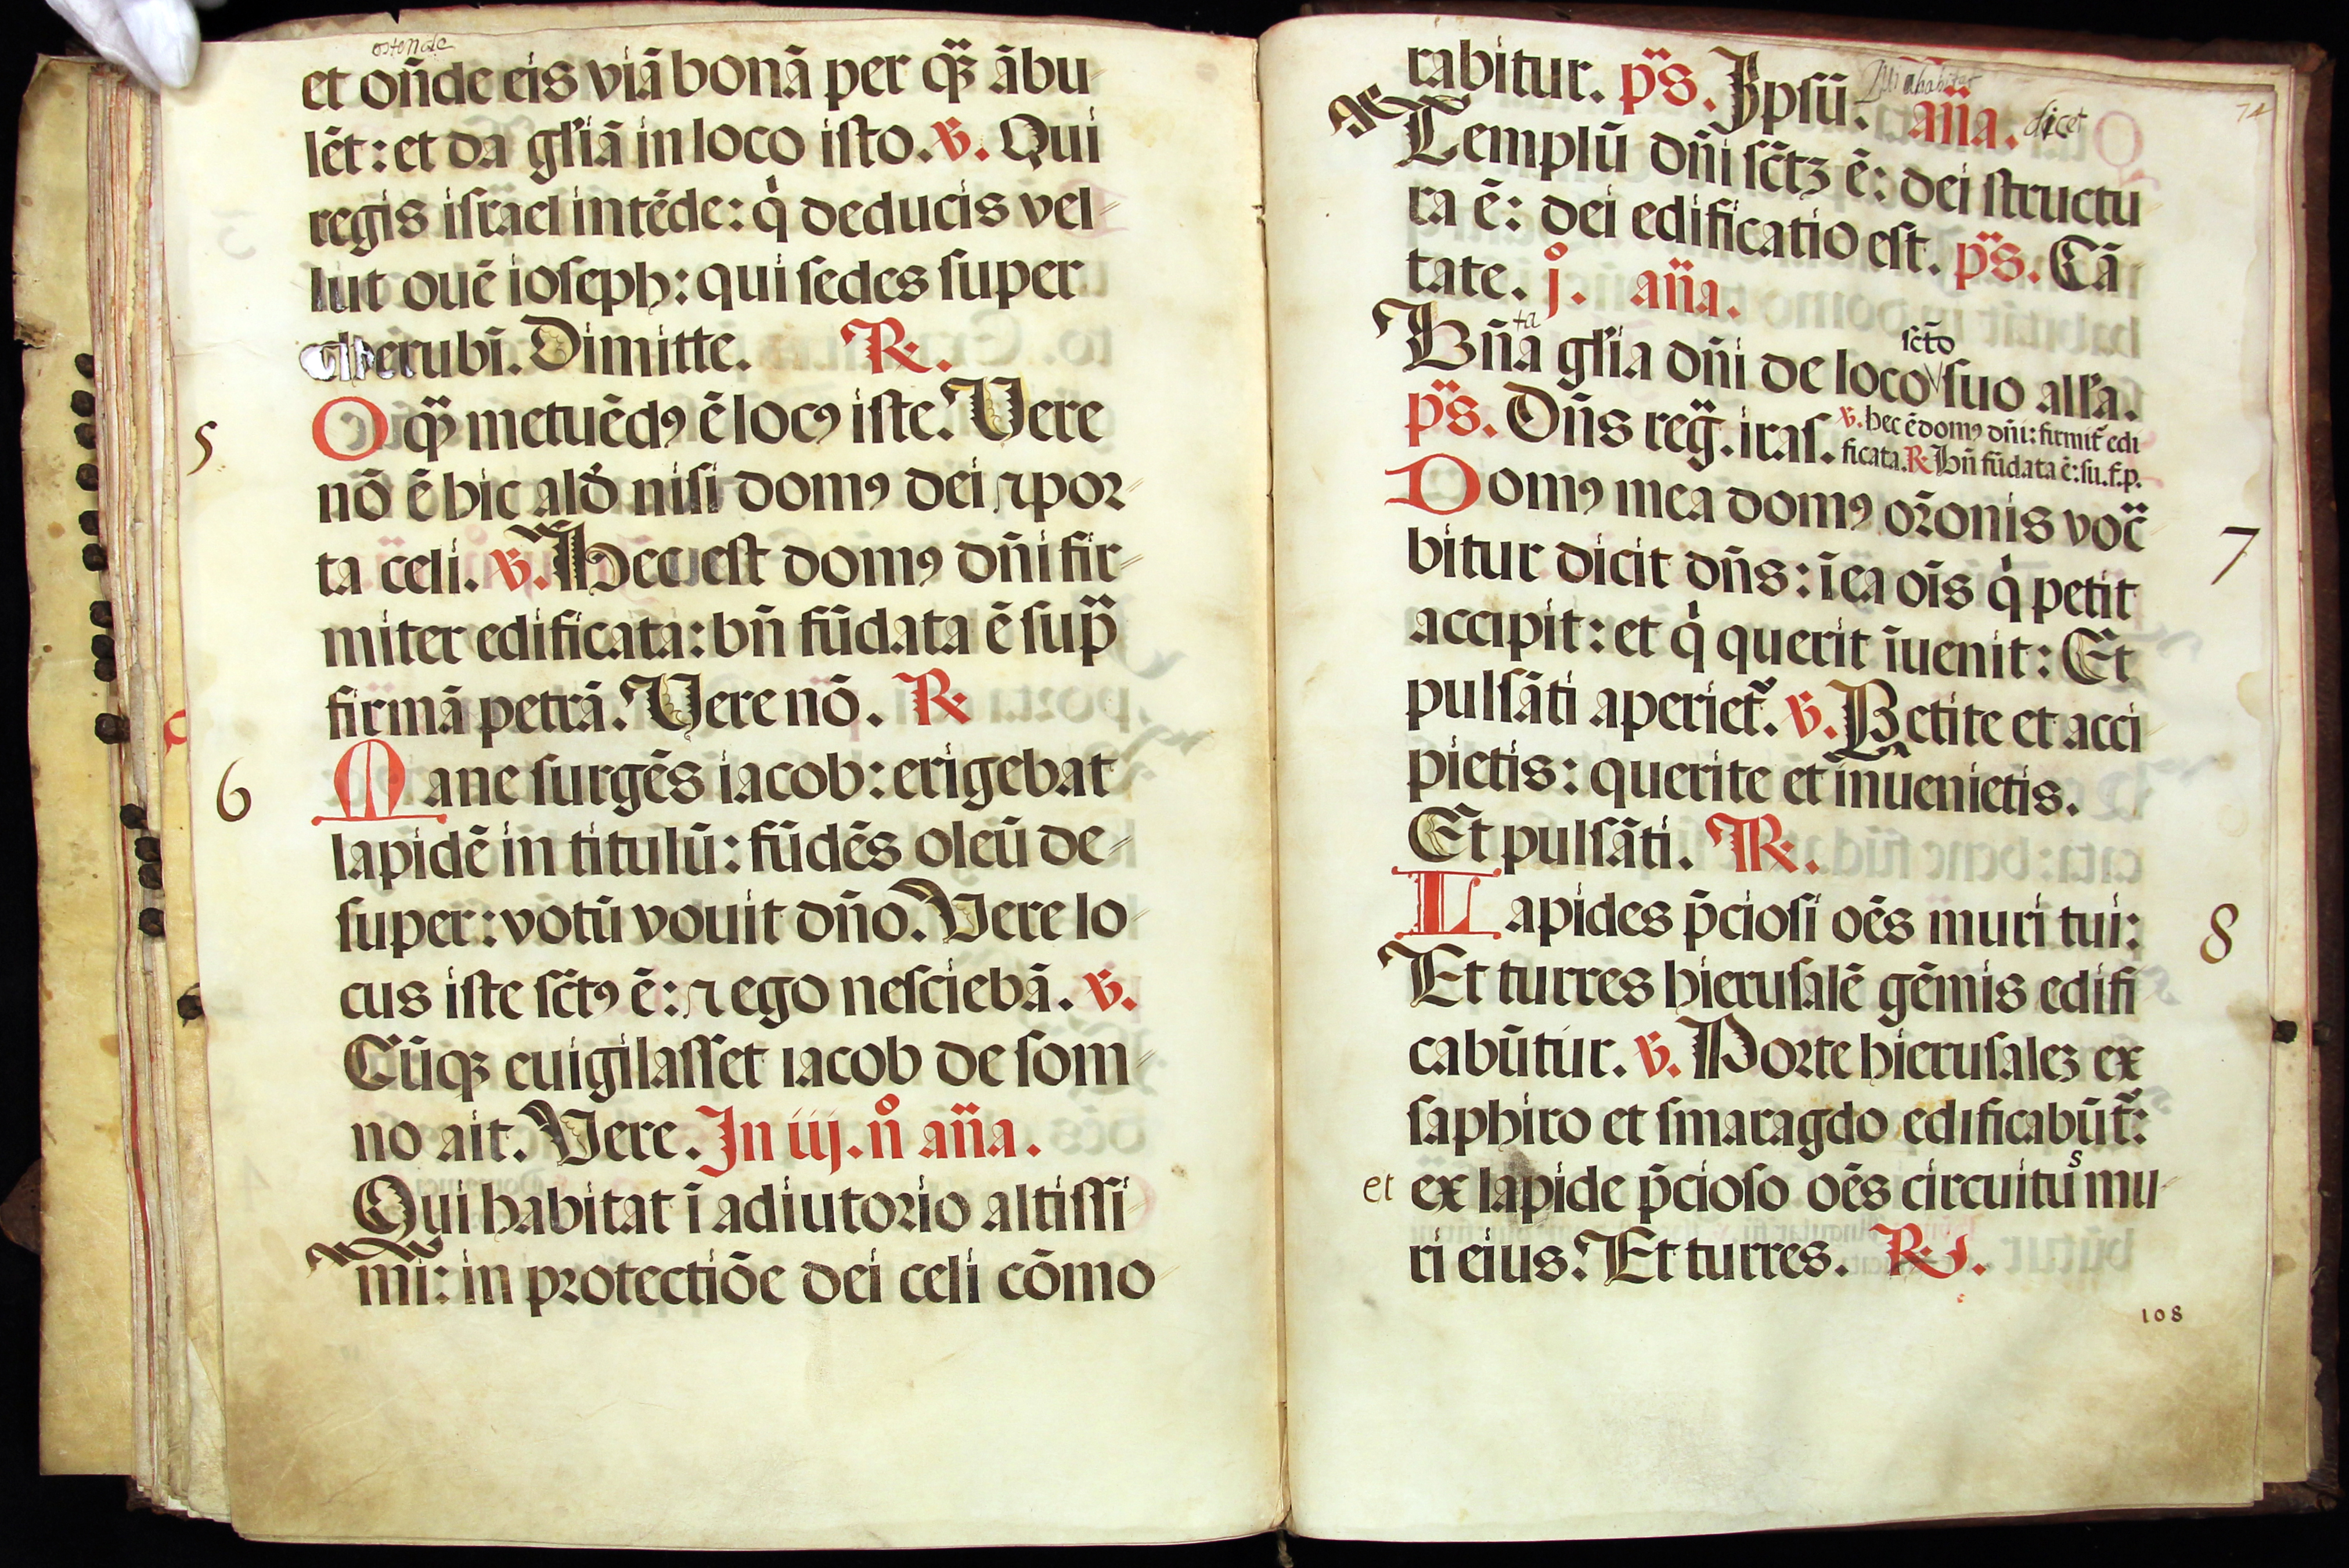 ostende
et on̄de eis viā bonā per qꝫ̄ ābu
lēt: et da gl̄iā in loco isto. ℣. Qui
regis isr̄ael intēde: q̇ deducis vel
lut ouē ioseph: qui sedes super
cherubī. Dimitte. ℟.
5
O qꝫ̄ metuēdꝯ ē locꝯ iste. Vere
nō ē hic alđ nisi domꝯ dei ⁊ por
ta celi. ℣. Hec est domꝯ dn̄i fir
miter edificata: bn̄ fūdata ē sup̄
firmā petrā. Vere nō. ℟
6
Mane surgēs iacob: erigebat
lapidē in titulū: fūdēs oleū de
super: votū vouit dn̄o. Vere lo
cus iste sc̄tꝯ ē: ⁊ ego nesciebā. ℣.
Cūqꝫ euigilasset iacob de som
no ait. Vere. In iij. n̊ an̄a.
Qui habitat ī adiutorio altissi
mi: in protectiōe dei celi cōmo
rabitur. ps̄. Ipsū. an̄a. dicet
Templū dn̄i sc̄tꝫ ē: dei structu
ra ē: dei edificatio est. ps̄. Cā
tate. j̊. an̄a.
ta
scto
Bn̄a gl̄ia dn̄i de loco suo all̄a.
ps̄. Dn̄s reg̃. iras. ℣. hec ē domꝯ dn̄i: firmit̄ edi
ficata. ℟ bn̄ fūdata ē: su. f. p.
Domꝯ mea domꝯ or̄onis voc̄
7
bitur dicit dn̄s: ī ea oīs q̇ petit
accipit: et q̇ querit īuenit: Et
pulsāti aperiet̄. ℣. Petite et acci
pietis: querite et inuenietis.
Et pulsāti. ℟.
8
Lapides p̄ciosi oēs muri tui:
Et turres hierusalē gēmis edifi
cabūtur. ℣. Porte hierusaleꝫ ex
saphiro et smaragdo edificabūt̄:
et ex lapide p̄cioso oēs circuitus mu
ri eius. Et turres. ℟.
108